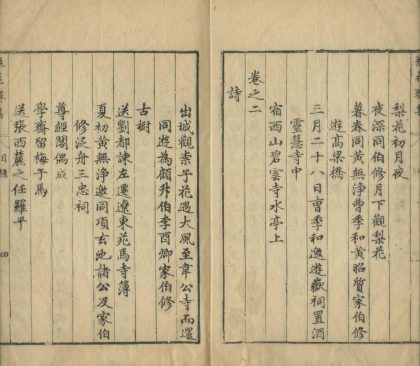 梨花初月夜
夜深同伯修月下觀梨花
暮春同黃無淨曹季和黃昭質家伯修
遊高梁橋
三月二十八日曹季和邀遊嶽祠置酒
靈慧寺中
宿西山碧雲寺水亭上
卷之二
詩
出城觀素㮈花遇大風至韋公寺而還
同遊為顧升伯李酉卿家伯修
古樹
送劉都諫左遷遼東苑馬寺簿
夏初黃無淨邀同項玄池諸公及家伯
修泛舟三忠祠
尊經閣偶成
學齋留梅子馬
送張西麓之任羅平